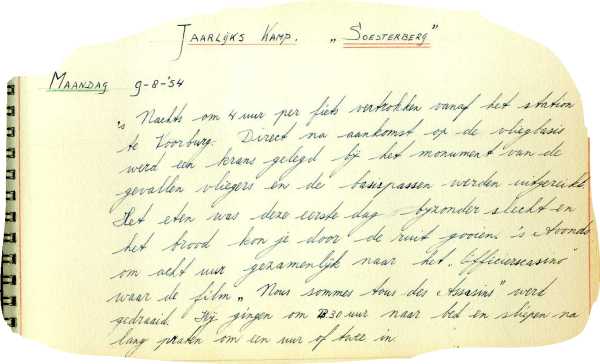 JAARLIJKS KAMP. „SOESTERBERG"
MAANDAG 9-8-'54
's Nachts om 4 uur per fiets vertrokken vanaf het station
te Voorburg. Direct na aankomst op de vliegbasis
werd een krans gelegd bij het monument van de
gevallen vliegers en de basispassen werden uitgereikt.
Het eten was deze eerste dag bijzonder slecht en
het brood kon je door de ruit gooien. 's Avonds
om acht uur gezamenlijk naar het „Officierscasino"
waar de film „Nous sommes tous des Assasins" werd
gedraaid. Wij gingen om 30 uur naar bed en sliepen na
lang praten om een uur of twee in.